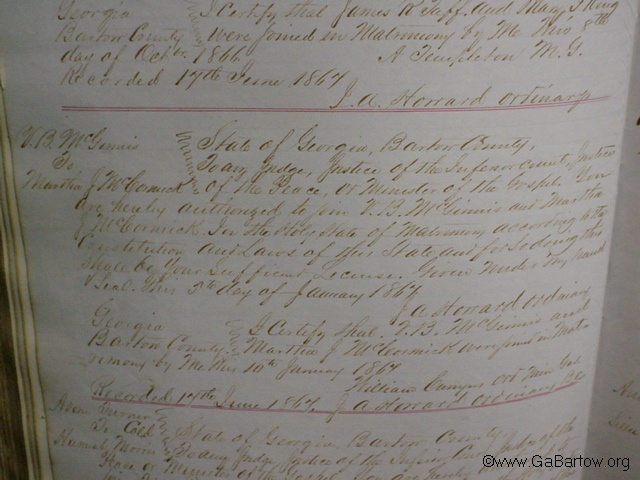 Georgia I Certify that James R Taff. and Mary J King
Bartow County were joined in Matrimony by Me this 8th
day of Octbr. 1866 A Templeton M.G.
Recorded 17th June 1867
J. A. Howard ordinary
V. B. McGinnis State of Georgia, Bartow County,
To To any Judge, Justice of the Inferior County, Justice
Martha J McCormick of the Peace, or Minister of the Gospel. You
are hereby authorized to join V. B. McGinnis and Martha
J McCormick In the Holy State of Matrimony according to the
Constitution and Laws of this State, and for so doing this
Shall be Your Sufficient License. Given Under My hand
& Seal. this 5th day of January 1867
J A Howard ordinary
Georgia I Certify that V. B. McGinnis and
Bartow County Martha J McCormick were joined in Matri
imony by Me this 10th January 1867
William ord Min Gos
Recorded 17th June 1867. J A Howard Ordinary BC
Turner
To Col State of Georgia, Bartow County
To any Judge Justice of the Inferior Judge of the
Peace or Minister of the Gospel You are hereby
©www.GaBartow.org